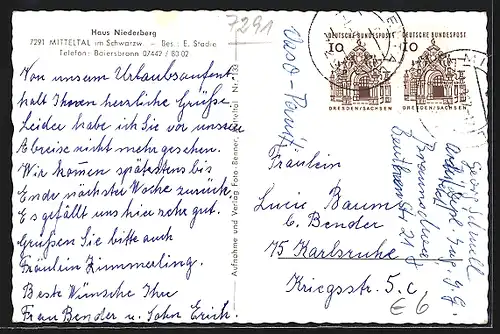 Haus Niederberg
7291 MITTELTAL im Schwarzw. – Bes.: E. Stadie
Telefon: Baiersbronn 07442 / 83 02
7291
Von unserm Urlaubsaufent-
halt Ihnen herzliche Grüße.
Leider habe ich Sie vor unserer
Abreise nicht mehr gesehen.
Wir kommen spätestens bis
Ende nächster Woche zurück.
Es gefällt uns hier sehr gut.
Grüßen Sie bitte auch
Fräulein Zimmerling.
Beste Wünsche Ihre
Frau Bender u. Sohn Erich.
Aufnahme und Verlag Foto-Benner, Mitteltal Nr.
DEUTSCHE BUNDESPOST
10
DRESDEN/SACHSEN
DEUTSCHE BUNDESPOST
10
DRESDEN/SACHSEN
Fräulein
Lucie Baum
b. Bender
75 Karlsruhe
Kriegsstr. 5.c
€ 6